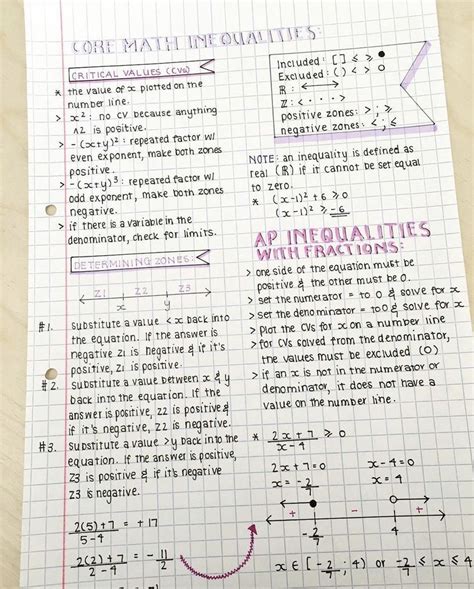 CORE MATH INEQUALITIES:
CRITICAL VALUES (CVs)
* the value of x plotted on the
number line.
> x²: no CV because anything
^2 is positive.
> -(x+y)²: repeated factor w/
even exponent, make both zones
positive.
> -(x+y)³: repeated factor w/
odd exponent, make both zones
negative.
> if there is a variable in the
denominator, check for limits.
DETERMINING ZONES:
Z1 Z2 Z3
x y
#1. Substitute a value < x back into
the equation. If the answer is
negative Z1 is negative & if it's
positive, Z1 is positive.
#2. Substitute a value between x & y
back into the equation. If the
answer is positive, Z2 is positive &
if it's negative, Z2 is negative.
#3. Substitute a value > y back into the
equation. If the answer is positive,
Z3 is positive & if it's negative
Z3 is negative.
2(5)+7 / 5-4 = +17
2(2)+7 / 2-4 = -11/2
Included: [ ] ≤ ≥ ●
Excluded: ( ) < > ○
ℝ: ⟷
ℤ: < · · · >
positive zones: > ; ≥
negative zones: < ; ≤
NOTE: an inequality is defined as
real (ℝ) if it cannot be set equal
to zero.
* (x-1)² + 6 ≥ 0
(x-1)² ≥ -6
AP INEQUALITIES
WITH FRACTIONS:
> one side of the equation must be
positive & the other must be 0.
> set the numerator = to 0 & solve for x
> set the denominator = to 0 & solve for x
> plot the CVs for x on a number line
> for CVs solved from the denominator,
the values must be excluded (O)
> if an x is not in the numerator or
denominator, it does not have a
value on the number line.
* 2x+7 / x-4 ≥ 0
2x+7=0 x-4=0
x = -2/7 x = 4
+ - +
-2/7 4
x ∈ [-2/7 ; 4) or -2/7 ≤ x ≤ 4